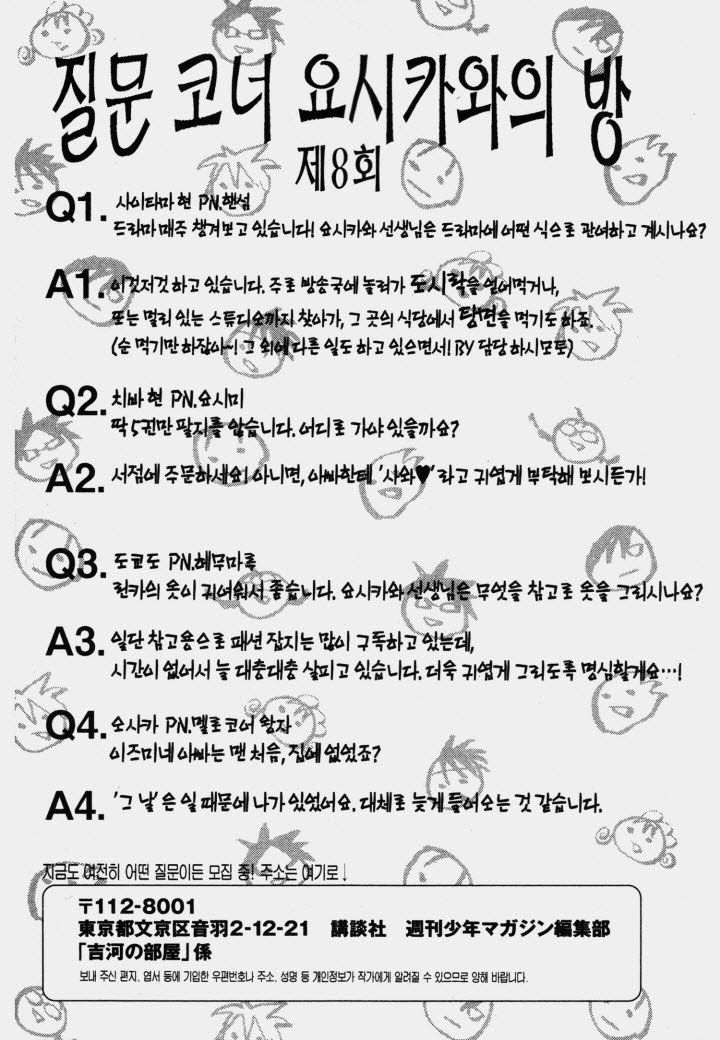 질문 코너 요시카와의 방
제8회
Q1. 사이타마 현 PN.햄섬
드라마 매주 챙겨보고 있습니다! 요시카와 선생님은 드라마에 어떤 식으로 관여하고 계시나요?
A1. 이것저것 하고 있습니다. 주로 방송국에 놀러가 도시락을 얻어먹거나,
또는 멀리 있는 스튜디오까지 찾아가, 그 곳의 식당에서 탕면을 먹기도 하죠.
(순 먹기만 하잖아~! 그 외에 다른 일도 하고 있으면서! BY 담당 하시모토)
Q2. 치바 현 PN.요시미
딱 5권만 팔지를 않습니다. 어디로 가야 있을까요?
A2. 서점에 주문하세요! 아니면, 아빠한테 '사와♥'라고 귀엽게 부탁해 보시든가!
Q3. 도쿄도 PN.헤무마루
런카의 옷이 귀여워서 좋습니다. 요시카와 선생님은 무엇을 참고로 옷을 그리시나요?
A3. 일단 참고용으로 패션 잡지는 많이 구독하고 있는데,
시간이 없어서 늘 대충대충 살피고 있습니다. 더욱 귀엽게 그리도록 명심할게요…!
Q4. 오사카 PN.멜로코어 왕자
이즈미네 아빠는 맨 처음, 집에 없었죠?
A4. '그 날'은 일 때문에 나가 있었어요. 대체로 늦게 들어오는 것 같습니다.
지금도 여전히 어떤 질문이든 모집 중! 주소는 여기로↓
〒112-8001
東京都文京区音羽2-12-21 講談社 週刊少年マガジン編集部
「吉河の部屋」係
보내 주신 편지, 엽서 등에 기입한 우편번호나 주소, 성명 등 개인정보가 작가에게 알려질 수 있으므로 양해 바랍니다.